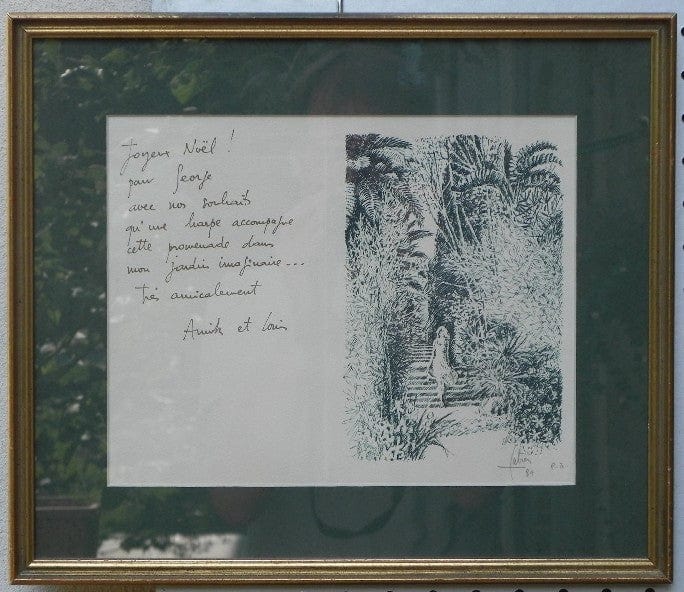 Joyeux Noël !
pour George
avec nos souhaits
qu'une harpe accompagne
cette promenade dans
mon jardin imaginaire...
très amicalement
et Louis
84